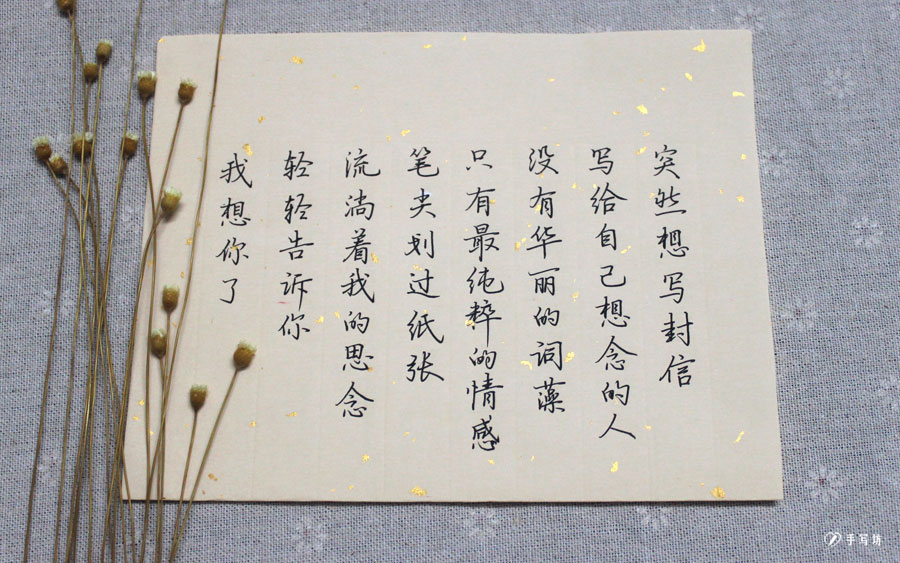 突然想写封信
写给自己想念的人
没有华丽的词藻
只有最纯粹的情感
笔尖划过纸张
流淌着我的思念
轻轻告诉你
我想你了
手写坊